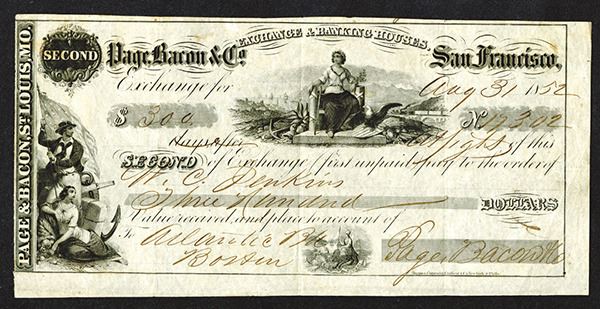 SECOND
EXCHANGE & BANKING HOUSES,
Page, Bacon & Co. San Francisco,
Exchange for Aug 31 1852
$ 300 No 12302
At Sight of this
SECOND of Exchange (first unpaid) pay to the order of
W. C. Jenkins
Three Hundred DOLLARS
Value received, and place to account of
To Atlantic Bk Page, Bacon & Co
Boston
PAGE & BACON, ST LOUIS, MO.